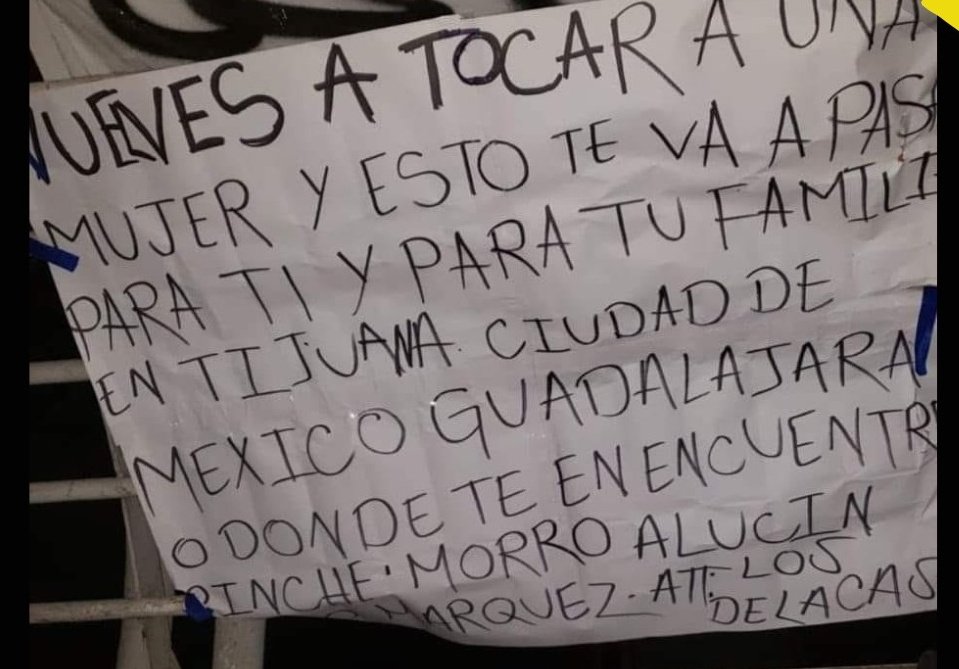 VUELVES A TOCAR A UNA
MUJER Y ESTO TE VA A PAS
PARA TI Y PARA TU FAMILI
EN TIJUANA. CIUDAD DE
MEXICO GUADALAJARA
O DONDE TE EN ENCUENTR
PINCHE MORRO ALUCIN
MARQUEZ. ATT: LOS
DELACAS